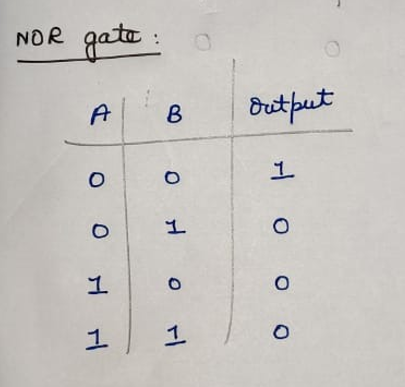 NOR gate :
A B Output
0 0 1
0 1 0
1 0 0
1 1 0